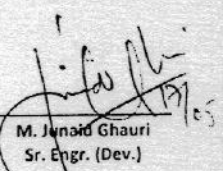 17/05
M. Junaid Ghauri
Sr. Engr. (Dev.)